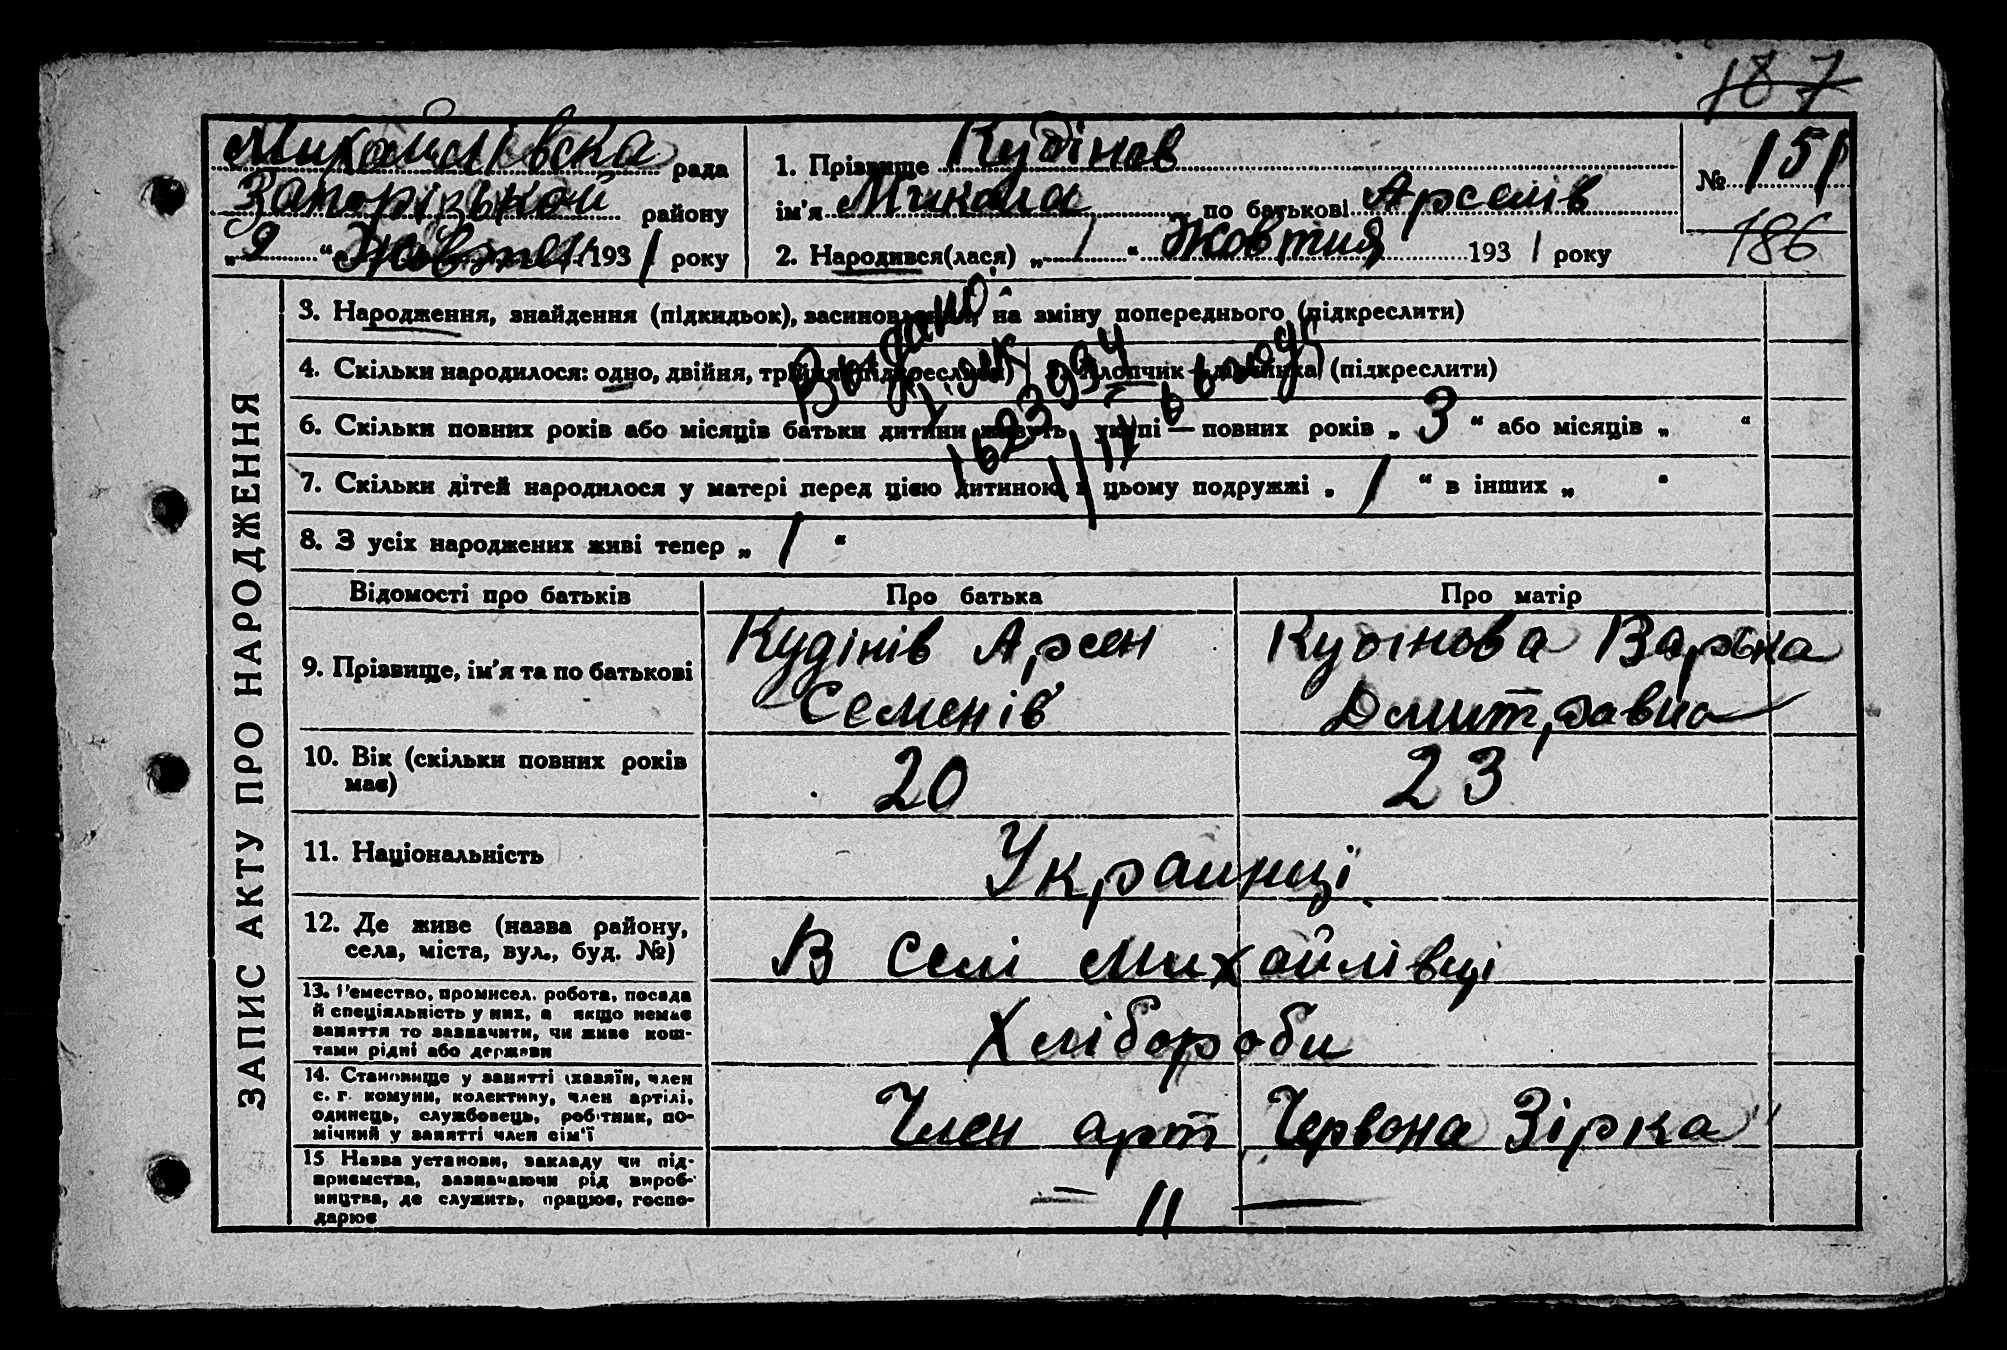 187
Михайлівска рада
Запорізькой району
„9“ Жовтня 1931 року
1. Прізвище Кудінов
ім'я Микола по батькові Арселів
2. Народився(лася) „1“ Жовтня 1931 року
№ 151
186
ЗАПИС АКТУ ПРО НАРОДЖЕННЯ
3. Народження, знайдення (підкидьок), засиновлення, на зміну попереднього (підкреслити)
4. Скільки народилося: одно, двійня, трійня (підкреслити) хлопчик (підкреслити)
6. Скільки повних років або місяців батьки дитини живуть укупі — повних років „3“ або місяців „ “
7. Скільки дітей народилося у матері перед цією дитиною в цьому подружжі „1“ в інших „ “
8. З усіх народжених живі тепер „1“
Видано
Відомості про батьків Про батька Про матір
9. Прізвище, ім'я та по батькові
Кудінів Арсен
Семенів
Кудінова Варька
Дмитравна
10. Вік (скільки повних років
має)
20
23
11. Національність
Украинці
12. Де живе (назва району,
села, міста, вул., буд. №)
В Селі Михайлівці
13. Ремество, промисел, робота, посада
й спеціяльність у них, а якщо немає
заняття то зазначити, чи живе кош-
тами рідні або держави
Хлібороби
14. Становище у занятті (хазяїн, член
с. г. комуни, колективу, член артілі,
одинець, службовець, робітник, по-
мічний у занятті член сім'ї
Член арт Червона Зірка"
15 Назва установи, закладу чи під-
приємства, зазначаючи рід вироб-
ництва, де служить, працює, госпо-
дарює
— 11 —